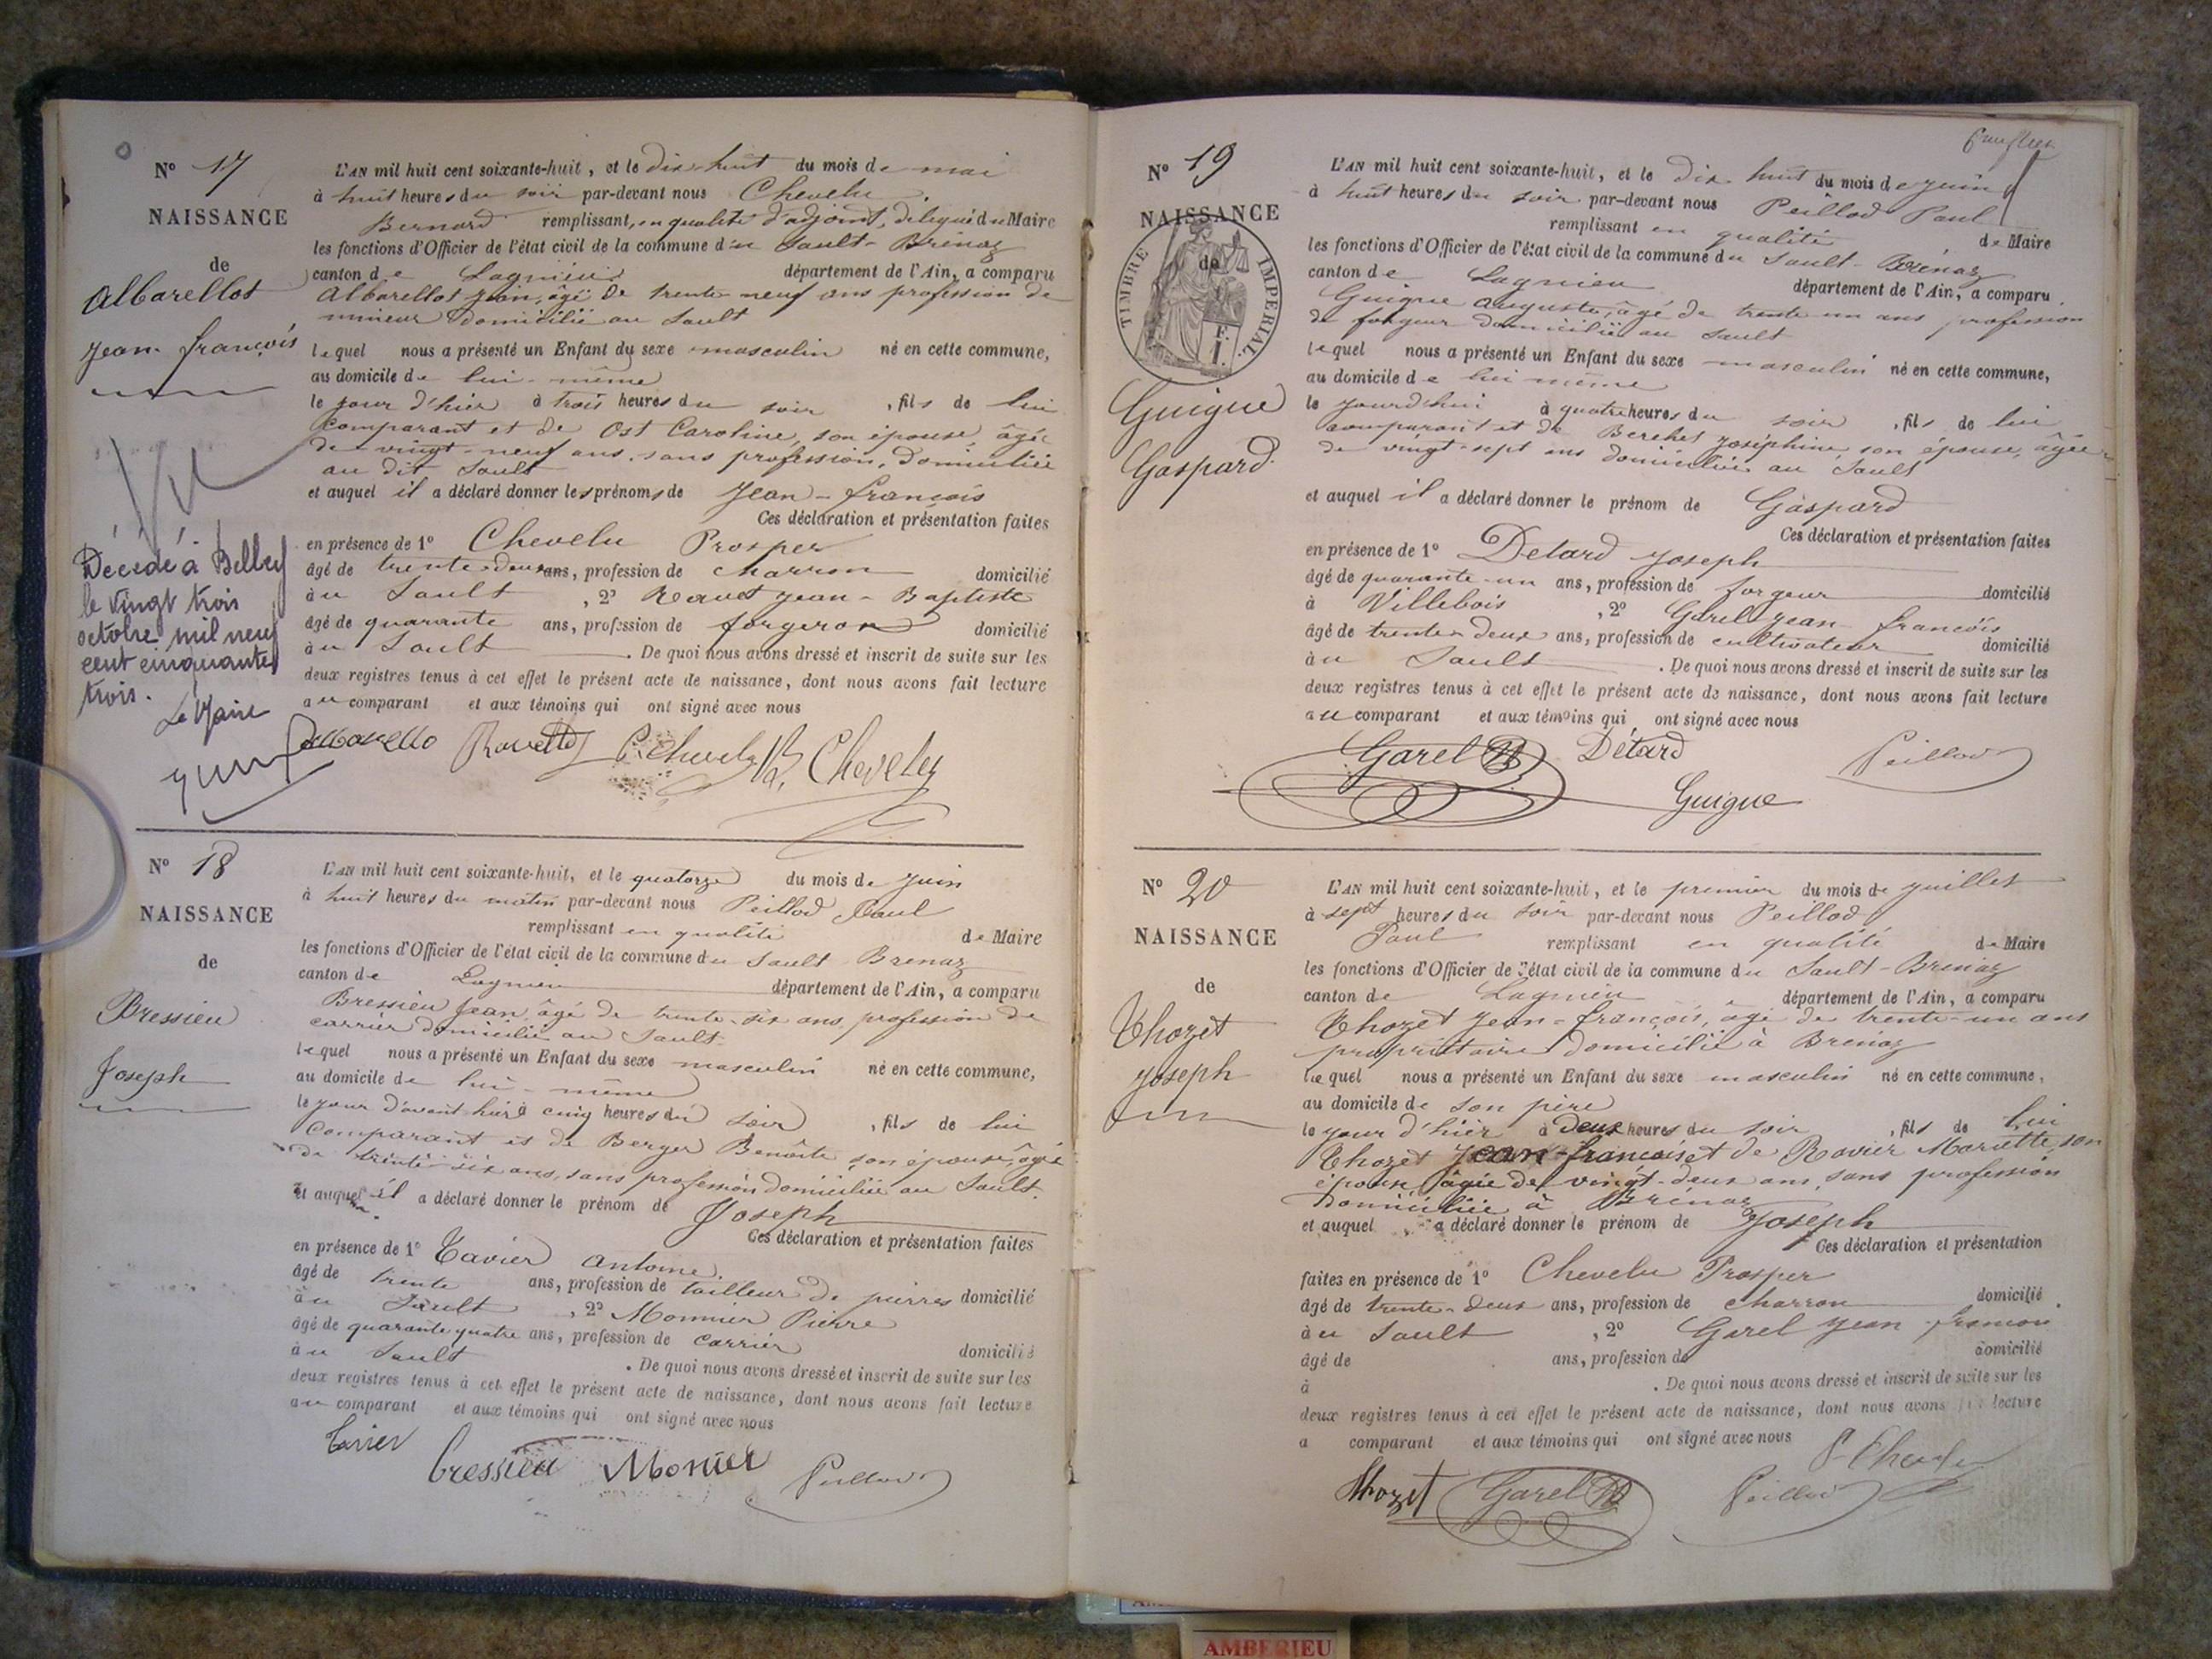 Nº 17
NAISSANCE
de
Albarellot
Jean-françois
Vu
Décédé à Belley
le vingt trois
octobre mil neuf
cent cinquante
trois.
Le Maire
L'AN mil huit cent soixante-huit, et le dix-huit du mois de mai
à huit heures du soir par-devant nous Chevelu
Bernard remplissant, en qualité d'adjoint, délégué du Maire
les fonctions d'Officier de l'état civil de la commune du Sault-Brénaz
canton de Lagnieu département de l'Ain, a comparu
Albarellot Jean, âgé de trente neuf ans profession de
mineur domicilié au Sault
lequel nous a présenté un Enfant du sexe masculin né en cette commune,
au domicile de lui-même
le jour d'hier à trois heures du soir, fils de lui
comparant et de Ost Caroline, son épouse, âgée
de vingt-neuf ans, sans profession, domiciliée
au dit Sault
et auquel il a déclaré donner les prénoms de Jean-françois
Ces déclaration et présentation faites
en présence de 1º Chevelu Prosper
âgé de trente-deux ans, profession de charron domicilié
au Sault, 2º Ravet Jean-Baptiste
âgé de quarante ans, profession de forgeron domicilié
au Sault. De quoi nous avons dressé et inscrit de suite sur les
deux registres tenus à cet effet le présent acte de naissance, dont nous avons fait lecture
au comparant et aux témoins qui ont signé avec nous
P. Chevelu B. Chevelu
Nº 18
NAISSANCE
de
Bressieu
Joseph
L'AN mil huit cent soixante-huit, et le quatorze du mois de juin
à huit heures du matin par-devant nous Peillod Paul
remplissant en qualité de Maire
les fonctions d'Officier de l'état civil de la commune du Sault Brenaz
canton de Lagnieu département de l'Ain, a comparu
Bressieu Jean, âgé de trente-six ans, profession de
carrier domicilié au Sault
lequel nous a présenté un Enfant du sexe masculin né en cette commune,
au domicile de lui-même
le jour d'avant hier à cinq heures du soir, fils de lui
comparant et de Berger Benoîte son épouse, âgée
de trente-six ans, sans profession domiciliée au Sault.
Et auquel il a déclaré donner le prénom de Joseph
Ces déclaration et présentation faites
en présence de 1º Tavier Antoine
âgé de trente ans, profession de tailleur de pierres domicilié
au Sault, 2º Monnier Pierre
âgé de quarante quatre ans, profession de carrier domicilié
au Sault. De quoi nous avons dressé et inscrit de suite sur les
deux registres tenus à cet effet le présent acte de naissance, dont nous avons fait lecture
au comparant et aux témoins qui ont signé avec nous
Tavier Bressieu Monier Peillod
Nº 19
NAISSANCE
de
TIMBRE IMPERIAL
E.
I.
Guigue
Gaspard
L'AN mil huit cent soixante-huit, et le dix huit du mois de juin
à huit heures du soir par-devant nous Peillod Paul
remplissant en qualité de Maire
les fonctions d'Officier de l'état civil de la commune du Sault-Brénaz
canton de Lagnieu département de l'Ain, a comparu
Guigue Auguste, âgé de trente un ans profession
de forgeur domicilié au Sault
lequel nous a présenté un Enfant du sexe masculin né en cette commune,
au domicile de lui même
le jourd'hui à quatre heures du soir, fils de lui
comparant et de Berchet Joséphine son épouse, âgée
de vingt-sept ans domiciliée au Sault
et auquel il a déclaré donner le prénom de Gaspard
Ces déclaration et présentation faites
en présence de 1º Detard Joseph
âgé de quarante-un ans, profession de forgeur domicilié
à Villebois, 2º Garel Jean-françois
âgé de trente-deux ans, profession de cultivateur domicilié
au Sault. De quoi nous avons dressé et inscrit de suite sur les
deux registres tenus à cet effet le présent acte de naissance, dont nous avons fait lecture
au comparant et aux témoins qui ont signé avec nous
Garel Détard Peillod
Guigue
Nº 20
NAISSANCE
de
Thozet
Joseph
L'AN mil huit cent soixante-huit, et le premier du mois de juillet
à sept heures du soir par-devant nous Peillod
Paul remplissant en qualité de Maire
les fonctions d'Officier de l'état civil de la commune du Sault-Brénaz
canton de Lagnieu département de l'Ain, a comparu
Thozet Jean-françois, âgé de trente-un ans
propriétaire domicilié à Brénaz
lequel nous a présenté un Enfant du sexe masculin né en cette commune,
au domicile de son père
le jour d'hier à deux heures du soir, fils de lui
Thozet Jean-françois et de Ravier Mariette, son
épouse âgée de vingt-deux ans, sans profession
domiciliée à Brénaz
et auquel a déclaré donner le prénom de Joseph
Ces déclaration et présentation
faites en présence de 1º Chevelu Prosper
âgé de trente-deux ans, profession de charron domicilié
au Sault, 2º Garel Jean-françois
âgé de ans, profession de domicilié
à . De quoi nous avons dressé et inscrit de suite sur les
deux registres tenus à cet effet le présent acte de naissance, dont nous avons fait lecture
a comparant et aux témoins qui ont signé avec nous
P. Chevelu
Thozet Garel Peillod
AMBERIEU